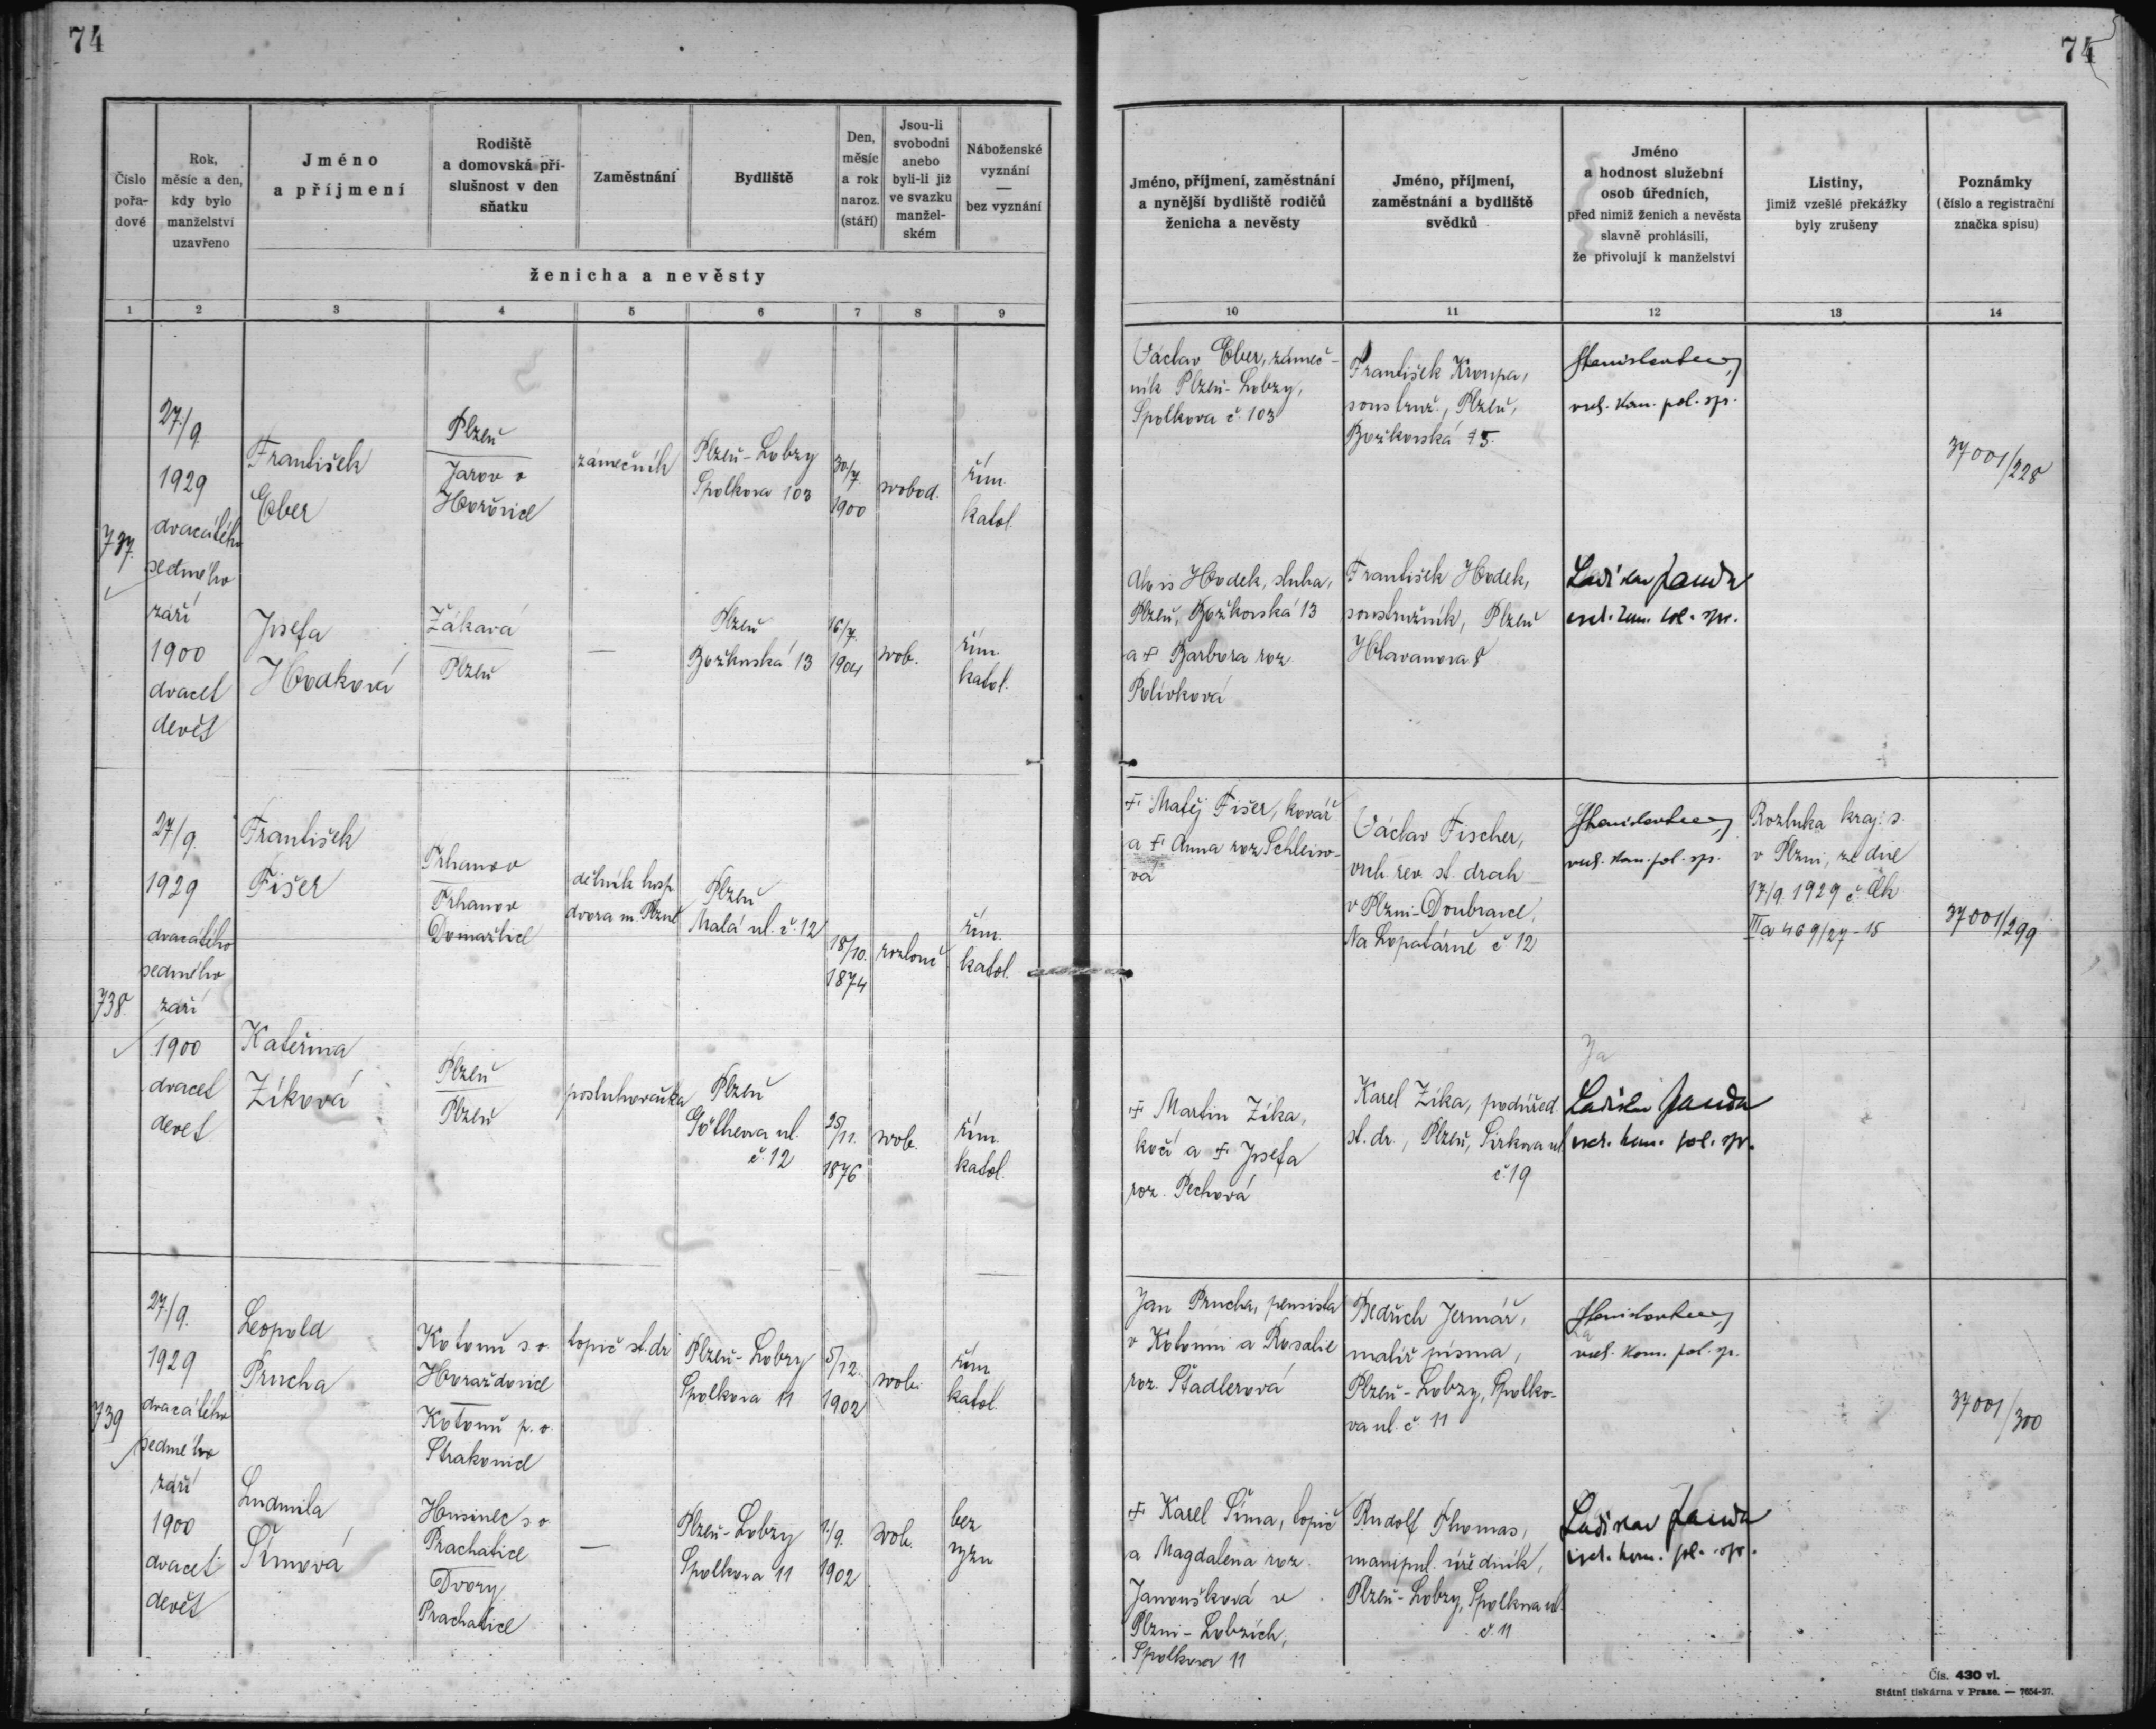 74
74
Číslo
pořa-
dové
Rok,
měsíc a den,
kdy bylo
manželství
uzavřeno
Jméno
a příjmení
Rodiště
a domovská pří-
slušnost v den
sňatku
Zaměstnání
Bydliště
Den,
měsíc
a rok
naroz.
(stáří)
Jsou-li
svobodni
anebo
byli-li již
ve svazku
manžel-
ském
Náboženské
vyznání
—
bez vyznání
ženicha a nevěsty
Jméno, příjmení, zaměstnání
a nynější bydliště rodičů
ženicha a nevěsty
Jméno, příjmení,
zaměstnání a bydliště
svědků
Jméno
a hodnost služební
osob úředních,
před nimiž ženich a nevěsta
slavně prohlásili,
že přivolují k manželství
Listiny,
jimiž vzešlé překážky
byly zrušeny
Poznámky
(číslo a registrační
značka spisu)
1 2 3 4 5 6 7 8 9 10 11 12 13 14
737.
27./9.
1929
dvacátého
sedmého
září
1900
dvacet
devět
František
Eber
Plzeň
Jarov o
Hořovice
zámečník
Plzeň-Lobzy
Spolkova 103
30/7.
1900
svobod.
řím.
katol.
Václav Eber, zámeč-
ník Plzeň-Lobzy,
Spolkova č. 103
František Kroupa,
soustruž., Plzeň,
Božkovská 15.
vrch. kom. pol. sp.
37001/228
Josefa
Hodková
Žákava
Plzeň
—
Plzeň
Božkovská 13
16/7.
1904
svob.
řím.
katol.
Alois Hodek, sluha,
Plzeň, Božkovská 13
a † Barbora roz.
Polívková
František Hodek,
soustružník, Plzeň
Hlavanova 8
Ladislav Janda
vrch. kom. pol. spr.
738.
27/9.
1929
dvacátého
sedmého
září
1900
dvacet
devet
František
Fišer
Trhanov
Trhanov
Domažlice
dělník hosp.
dvora m. Plzně
Plzeň
Malá ul. č. 12
18/10.
1874
rozlouč
řím.
katol.
† Matěj Fišer, kovář
a † Anna roz Schleiso-
vá
Václav Fischer,
vrch. rev. st. drah
v Plzni-Doubravce,
Na Lopatárně č 12
vrch. kom. pol. sp.
Rozluka kraj. s.
v Plzni, ze dne
17/9. 1929 č. Ck
IIIa 469/27-15
37001/299
Kateřina
Zíková
Plzeň
Plzeň
posluhovačka
Plzeň
Göthova ul.
č. 12
25/11.
1876
svob.
řím.
katol.
† Martin Zíka,
kočí a † Josefa
roz. Pechová
Karel Zíka, podúřed.
st. dr., Plzeň, Sirkova ul
č. 19
Ja
Ladislav Janda
vrch. kom. pol. spr.
739
27./9.
1929
dvacátého
sedmého
září
1900
dvacet
devět
Leopold
Prucha
Kotouň s. o
Horažďovice
Kotouň p. o.
Strakonice
topič st. dr
Plzeň-Lobzy
Spolkova 11
5/12.
1902
svob.
řím
katol.
Jan Prucha, pensista
v Kotouni a Rosalie
roz. Stadlerová
Bedřich Jermář,
malíř písma,
Plzeň-Lobzy, Spolko-
va ul. č. 11
vrch. kom. pol. sp.
37001/300
Ludmila
Šímová
Husinec s o
Prachatice
Dvory
Prachatice
—
Plzeň-Lobzy
Spolkova 11
1./9.
1902
svob.
bez
vyzn
† Karel Šíma, topič
a Magdalena roz.
Janoušková v
Plzni-Lobzích,
Spolkova 11
Rudolf Thomas,
manipul. úředník,
Plzeň-Lobzy, Spolkova ul.
č. 11
Ladislav Janda
vrch. kom. pol. spr.
Čís. 430 vl.
Státní tiskárna v Praze. — 7654-27.